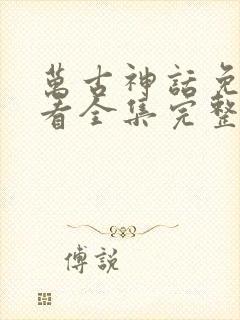 萬古神話免
看全集完整
傅說